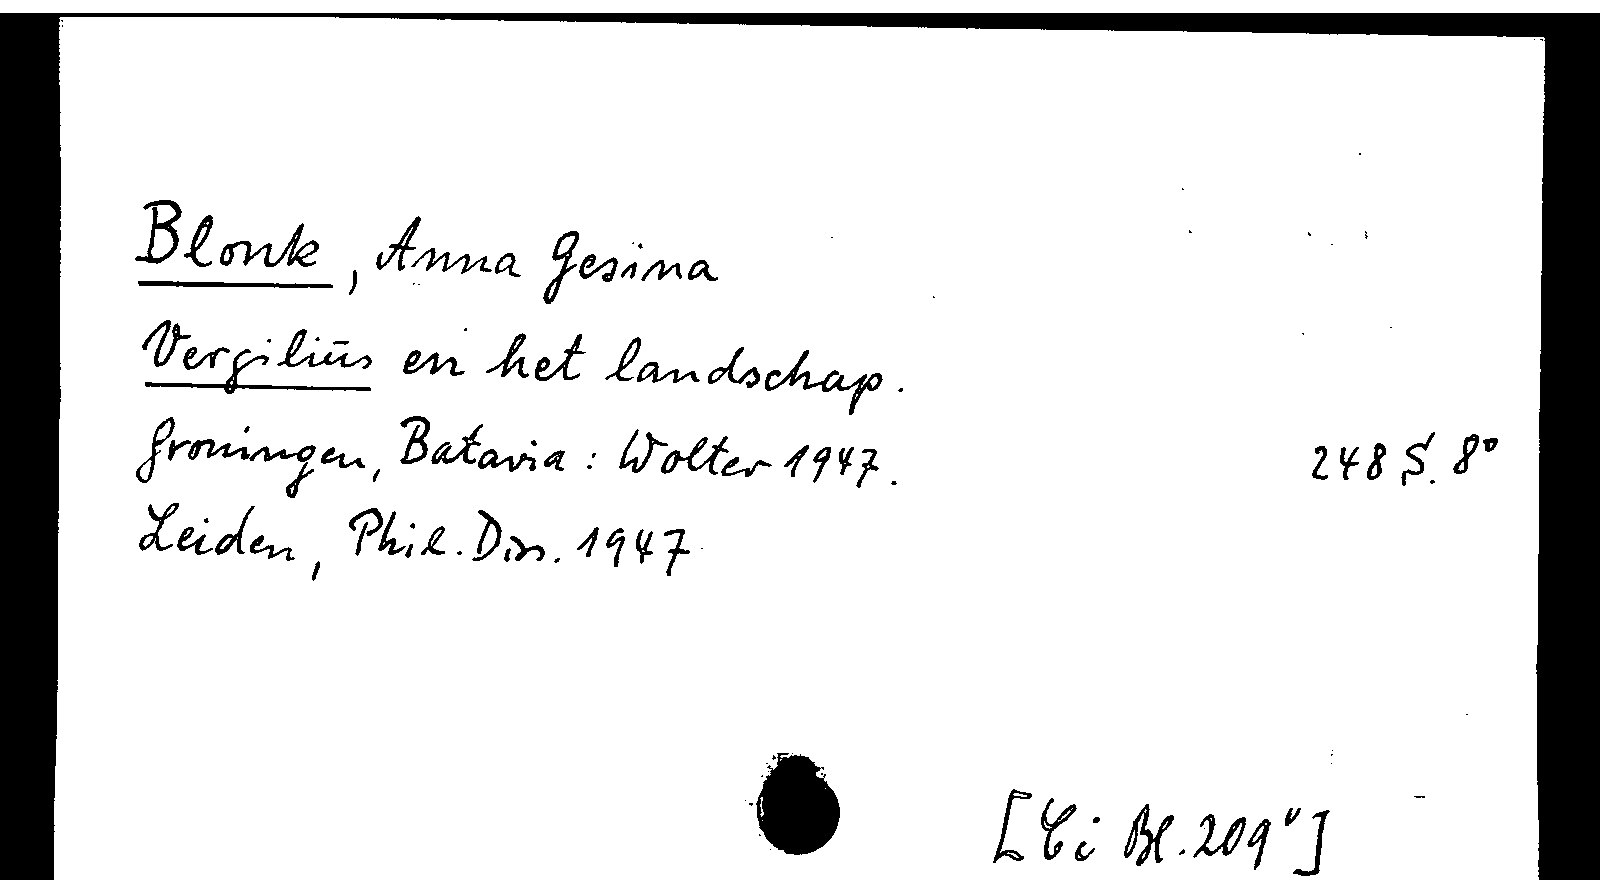 Blonk, Anna Gesina
Vergilius en het landschap.
Groningen, Batavia: Wolter 1947. 248 S. 8°
Leiden, Phil. Diss. 1947
[Ci Bl. 209"]